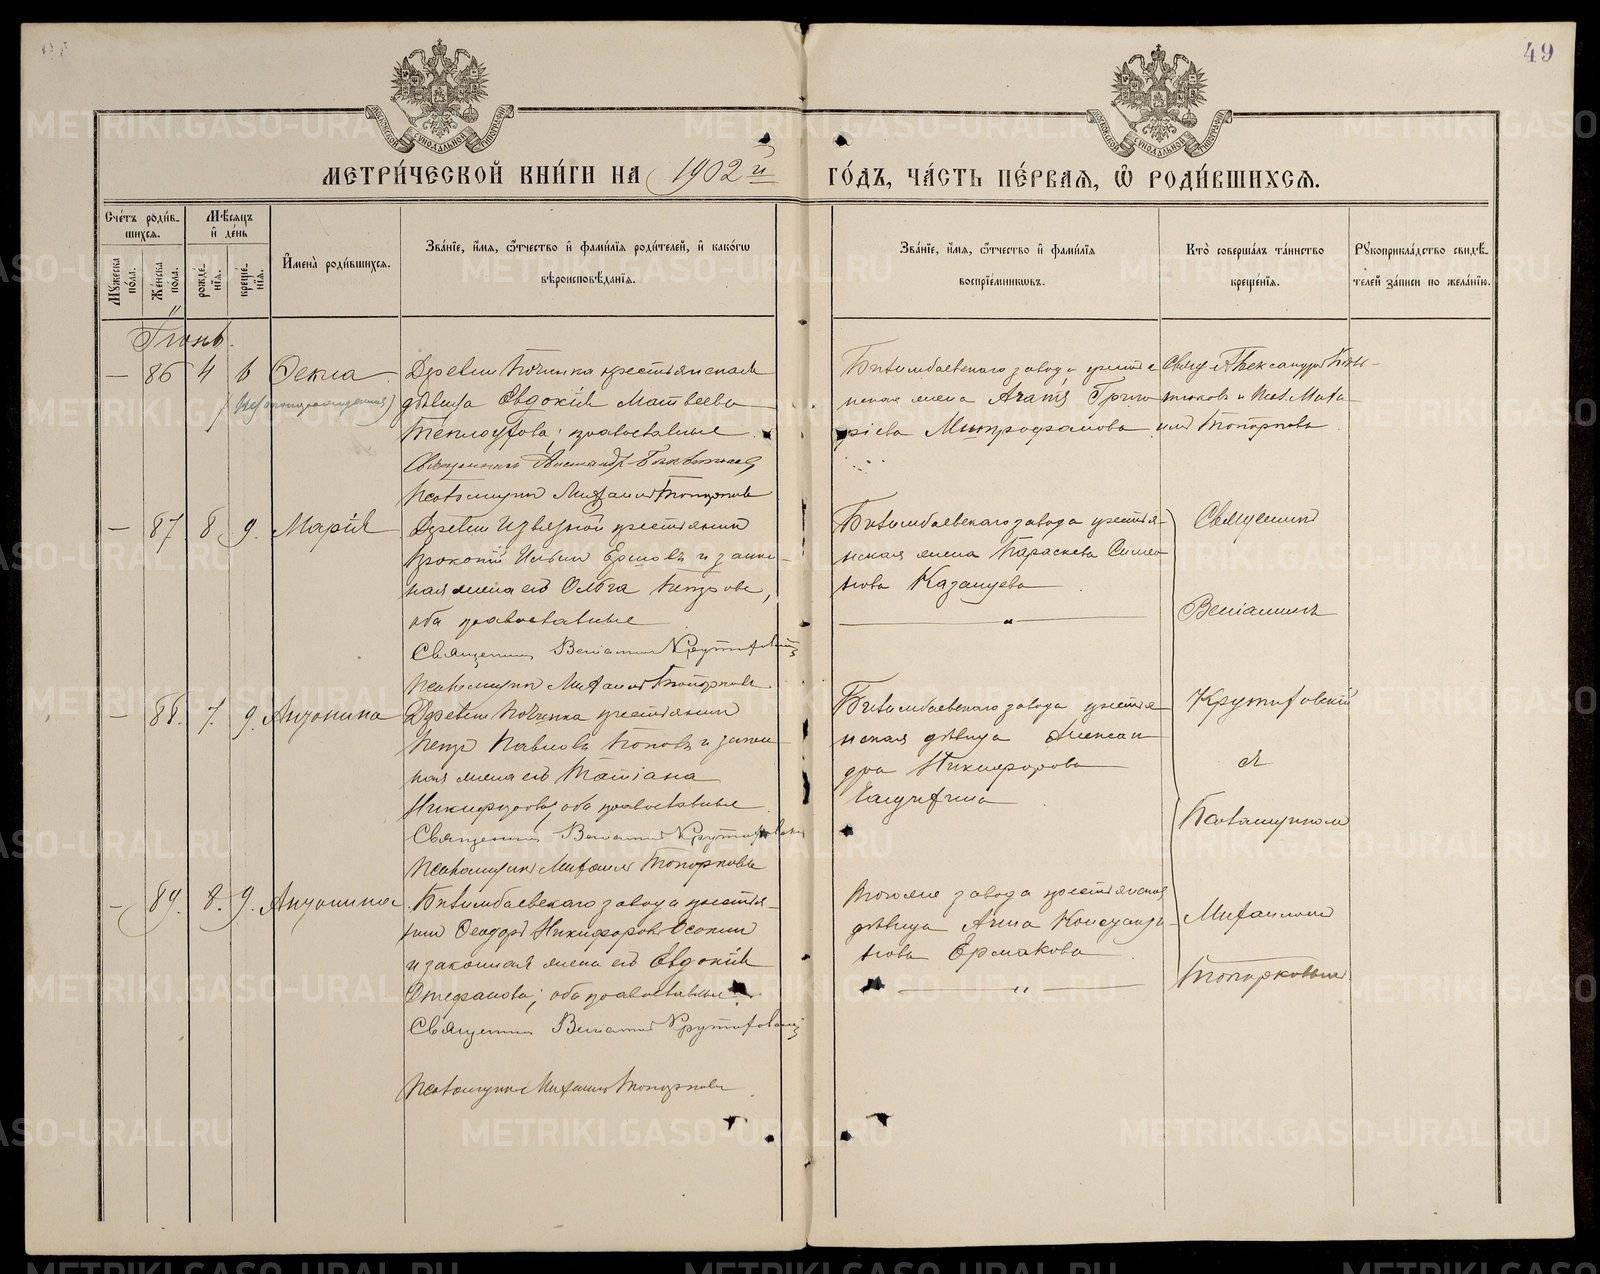 49
МОСКОВСКОЙ СѴНОДАЛЬНОЙ ТИПОГРАФІИ
МОСКОВСКОЙ СѴНОДАЛЬНОЙ ТИПОГРАФІИ
МЕТРИ́ЧЕСКОЙ КНИ́ГИ НА 1902 й ГО́ДЪ, ЧА́СТЬ ПЕ́РВАЯ, Ѡ РОДИ́ВШИХСЯ.
Сче́тъ роди́в-
шихся.
Мѣ́сяцъ
и҆ де́нь
Мꙋ́жеска по́ла.
Же́нска по́ла.
рожде́-
нїя.
креще́-
нїя.
И҆мена̀ роди́вшихся.
Зва́нїе, и҆́мя, ѻ҆́тчество и҆ фами́лїя роди́телей, и҆ како́гѡ
вѣроисповѣ́данїя.
Зва́нїе, и҆́мя, ѻ҆́тчество и҆ фами́лїя
воспрїе́мниковъ.
Кто̀ соверша́лъ та́инство
креще́нїя.
Рꙋкоприкла́дство свидѣ́-
телей за́писи по жела́нїю.
Іюнь.
— 86 4 6 Ѳекла
Деревни Починка крестьянская
дѣвица Евдокія Матвеева
Теплоухова; православные
Священникъ Александръ
Псаломщикъ Михаилъ Топорковъ
Билимбаевскаго завода крестья
нская жена Григо
ріева Митрофанова
Свящ. Александръ
и Псал. Миха
илъ Топорковъ
— 87 8 9. Марія
Деревни Извѣзной крестьянинъ
Прокопій Ильинъ Ершовъ и закон-
ная жена его Ольга Петрова,
оба православные
Священникъ Веніаминъ Крутиховскій
Псаломщикъ Михаилъ Топорковъ
Билимбаевскаго завода крестья-
нская жена Параскева Симео
нова Казанцева
Священникъ
Веніаминъ
— 88. 7. 9. Антонина
Деревни Починка крестьянинъ
Петръ Павловъ Поповъ и закон
ная жена его Татіана
Никифорова, оба православные
Священникъ Веніаминъ Крутиховскій
Псаломщикъ Михаилъ Топорковъ
Билимбаевскаго завода крестья
нская дѣвица Алексан
дра Никифорова
Крутиховскій
съ
Псаломщикомъ
— 89. 8. 9. Антонина
Билимбаевскаго завода крестья-
нинъ Ѳеодоръ Никифоровъ Осокинъ
и законная жена его Евдокія
Стефанова; оба православные
Священникъ Веніаминъ Крутиховскій
Псаломщикъ Михаилъ Топорковъ
Того же завода крестьянская
дѣвица Анна Константи
нова Ермакова
Михаиломъ
Топорковымъ
METRIKI.GASO-URAL.RU